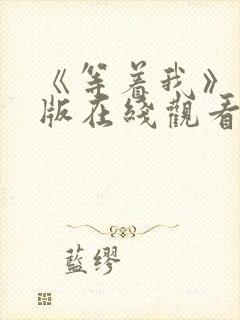 《等着我》
版在綫觀看
藍缪